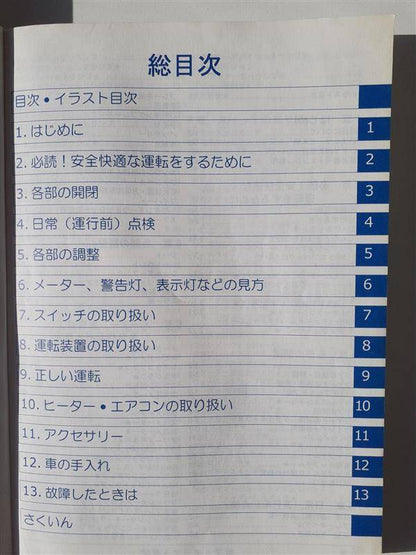 総目次
目次・イラスト目次
1. はじめに 1
2. 必読！安全快適な運転をするために 2
3. 各部の開閉 3
4. 日常（運行前）点検 4
5. 各部の調整 5
6. メーター、警告灯、表示灯などの見方 6
7. スイッチの取り扱い 7
8. 運転装置の取り扱い 8
9. 正しい運転 9
10. ヒーター・エアコンの取り扱い 10
11. アクセサリー 11
12. 車の手入れ 12
13. 故障したときは 13
さくいん